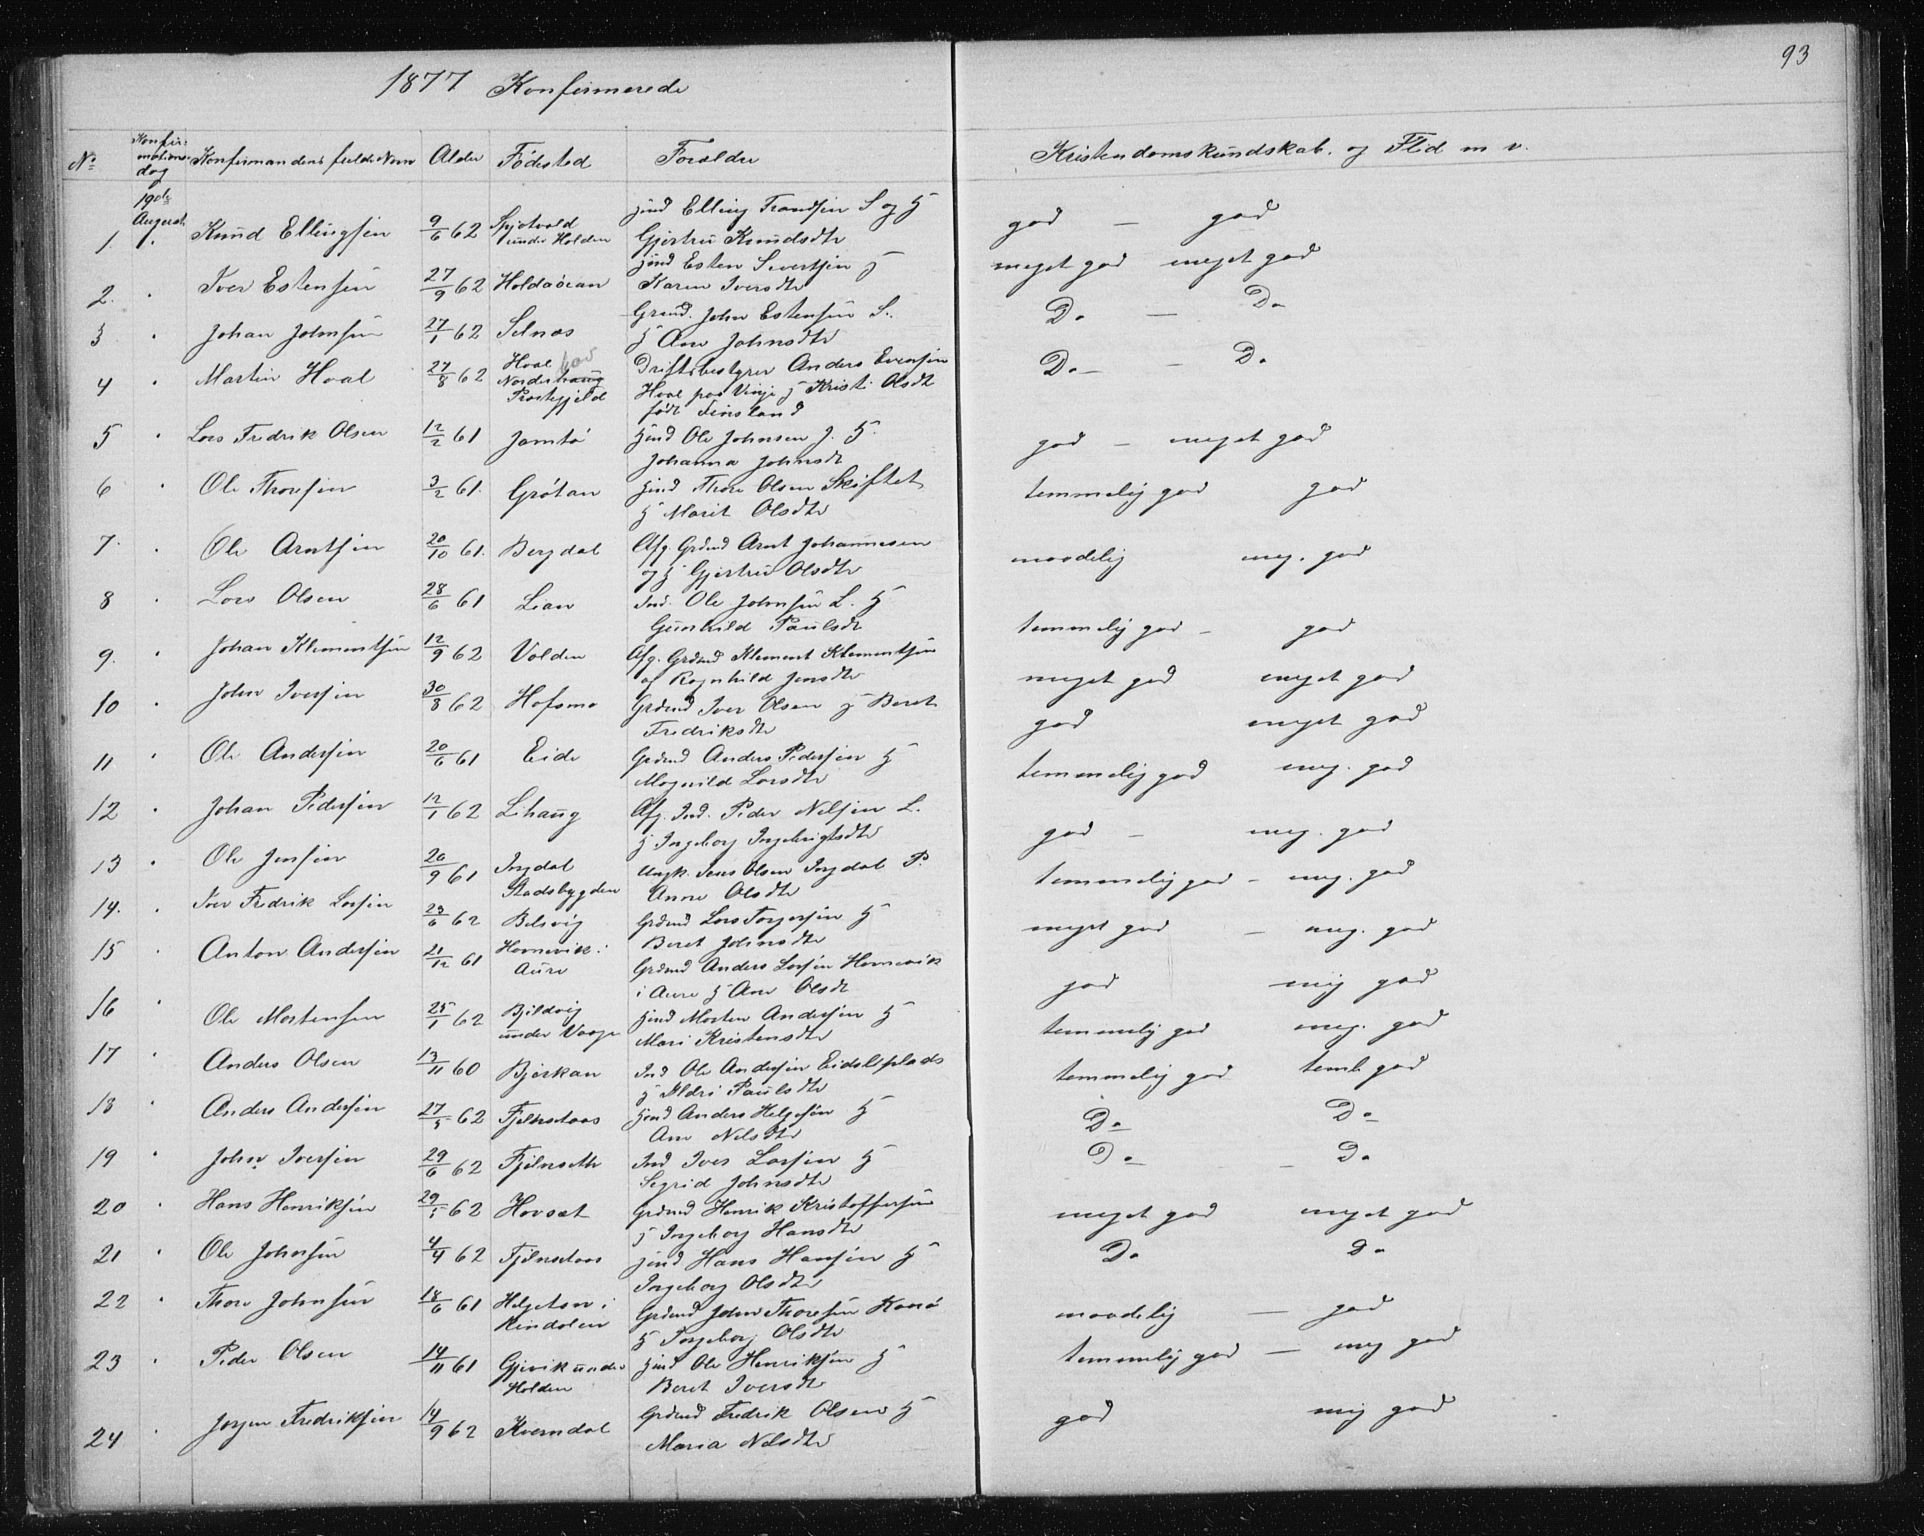 93
1877 Konfirmerede
No Konfirmations dag Konfirmandens fulde Navn Alder Födested Forældre Kristendomskundskab. og Flid m v.
19de August
1. Knud Ellingsen 9/6 62 Skjetvold under Holden Jnd Elling Trondsen S og H Gjertru Knudsdtr god – god
2. Iver Estensen 27/9 62 Holdaöian Jnd Esten Sivertsen H Karen Iversdtr meget god meget god
3 Johan Johnsen 27/1 62 Selnæs Grmd. John Estensen S. H Ane Johnsdtr Do – Do
4 Martin Hoal 27/8 62 Hoal Norderhaug Præstegjeld Driftsbestyrer Anders Evensen Hoal paa Vinje H Kristi Olsdt födt Finsland Do – Do
5 Lars Fredrik Olsen 12/2 61 Jamtö Jnd Ole Johnsen J. H. Johanna Johnsdt god – meget god
6 Ole Thoresen 3/2 61. Grötan Jnd Thore Olsen Skiftet H Marit Olsdtr temmelig god god
7. Ole Arntsen 20/10 61. Bergdal Afg. Grdmd Arnt Johannesen og H Gjertru Olsdtr maadelig meg. god
8 Lars Olsen 28/6 61 Lian Ind. Ole Johnsen L. H Gunhild Paulsdt temmelig god – god
9. Johan Klementsen 12/9 62 Volden Afg. Grdmd Klement Klementsen af Ragnhild Jensdtr meget god meget god
10 John Iversen 30/8 62 Hofsmo Grdmd Iver Olsen H Beret Fredriksdtr god meget god
11 Ole Andersen 20/6 61 Eide Grdmd Anders Pedersen H Magnild Larsdtr temmelig god meg. god
12 Johan Pedersen 12/1 62 Lihaug Afg. Ind. Peder Nilsen L. H Ingeborg Ingebrigtsdtr god – meg. god
13 Ole Jensen 20/9 61 Ingdal Stadsbygden Ungk. Jens Olsen Ingdal P. Anne Olsdtr temmelig god – meg. god
14. Iver Fredrik Larsen 23/6 62 Belsvig Grdmd Lars Torgersen H Beret Johnsdtr meget god – meg. god
15 Anton Andersen 21/12 61 Hornevik i Aure Grdmd Anders Larsen Hornevik i Aure H Ane Olsdt god meg god
16 Ole Mortensen 25/1 62 Bjeldvig under Vaage Jnd Morten Andersen H Mari Kristensdtr temmelig god meg. god
17 Anders Olsen 13/11 60 Bjerkan Ind Ole Andersen Eidslplads H Aldri Paulsdtr temmelig god teml god
18 Anders Andersen 27/5 62 Fjelnstaas Jnd Anders Helgesen H Ane Nilsdtr Do Do
19 John Iversen 29/6 62 Fjelnseth Ind Iver Larsen H Segrid Johnsdtr Do – Do
20 Hans Henriksen 29/5 62 Hovsæt Grdmd Henrik Kristoffersen H Ingeborg Hansdtr meget god meget god
21 Ole Johnsen 4/4 62 Fjelnstaas Jnd Hans Hansen H Ingeborg Olsdtr Do Do
22 Thore Johnsen 18/6 61 Helgeton i Rindalen Grdmd John Thoresen Korsö H Ingeborg Olsdtr maadelig – god
23 Peder Olsen 14/11 61 Gjevik under Holden Jnd Ole Henriksen H Beret Iversdtr temmelig god – meg god
24 Jörgen Fredriksen 14/9 62 Kverndal Grdmd Fredrik Olsen H Maria Nilsdtr god meg god